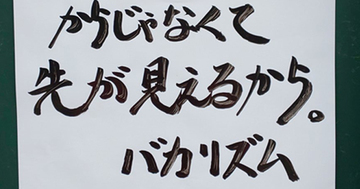 からじゃなくて
先が見えるから。
バカリズム